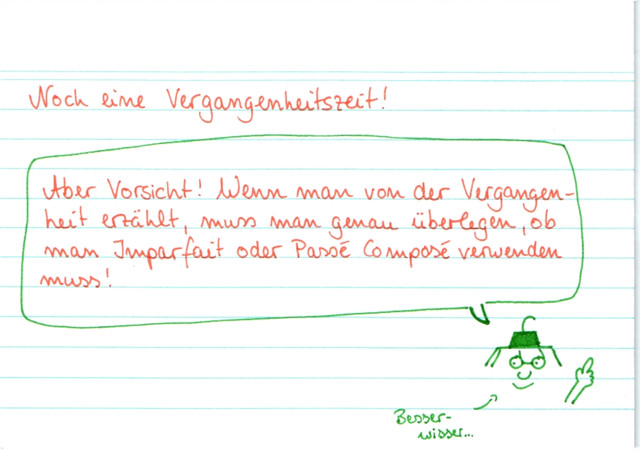 Noch eine Vergangenheitszeit!
Aber Vorsicht! Wenn man von der Vergangen-
heit erzählt, muss man genau überlegen, ob
man Imparfait oder Passé Composé verwenden
muss!
Besser-
wisser...